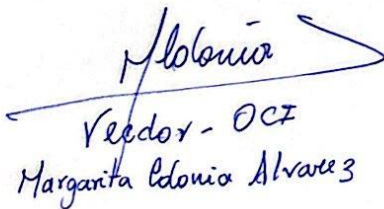 MColonia
Veedor - OCI
Margarita Colonia Alvarez